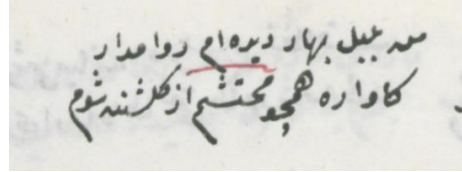 من بلبل بهار دیده‌ام روا مدار
کاواره همچو محتشم از گلشنت شوم